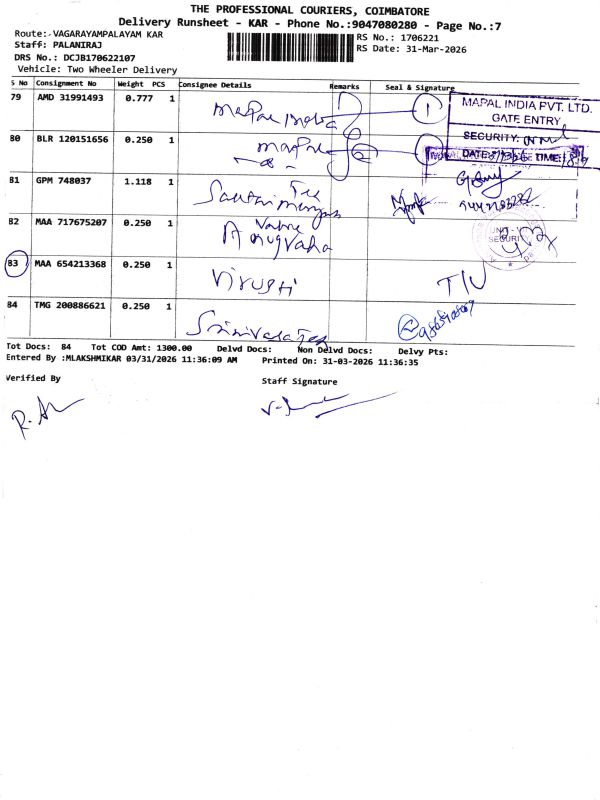 THE PROFESSIONAL COURIERS, COIMBATORE
Delivery Runsheet - KAR - Phone No.:9047080280 - Page No.:7
Route:-VAGARAYAMPALAYAM KAR
RS No.: 1706221
Staff: PALANIRAJ
RS Date: 31-Mar-2026
DRS No.: DCJB170622107
Vehicle: Two Wheeler Delivery
S No Consignment No Weight PCS Consignee Details Remarks Seal & Signature
79 AMD 31991493 0.777 1 Mapal India 1
MAPAL INDIA PVT. LTD.
GATE ENTRY
80 BLR 120151656 0.250 1 Mapal 2
SECURITY:
DATE: TIME:
81 GPM 748037 1.118 1
82 MAA 717675207 0.250 1
UNIT - V
SECURITY
83 MAA 654213368 0.250 1
84 TMG 200886621 0.250 1
Tot Docs: 84 Tot COD Amt: 1300.00 Delvd Docs: Non Delvd Docs: Delvy Pts:
Entered By :MLAKSHMIKAR 03/31/2026 11:36:09 AM Printed On: 31-03-2026 11:36:35
Verified By
Staff Signature